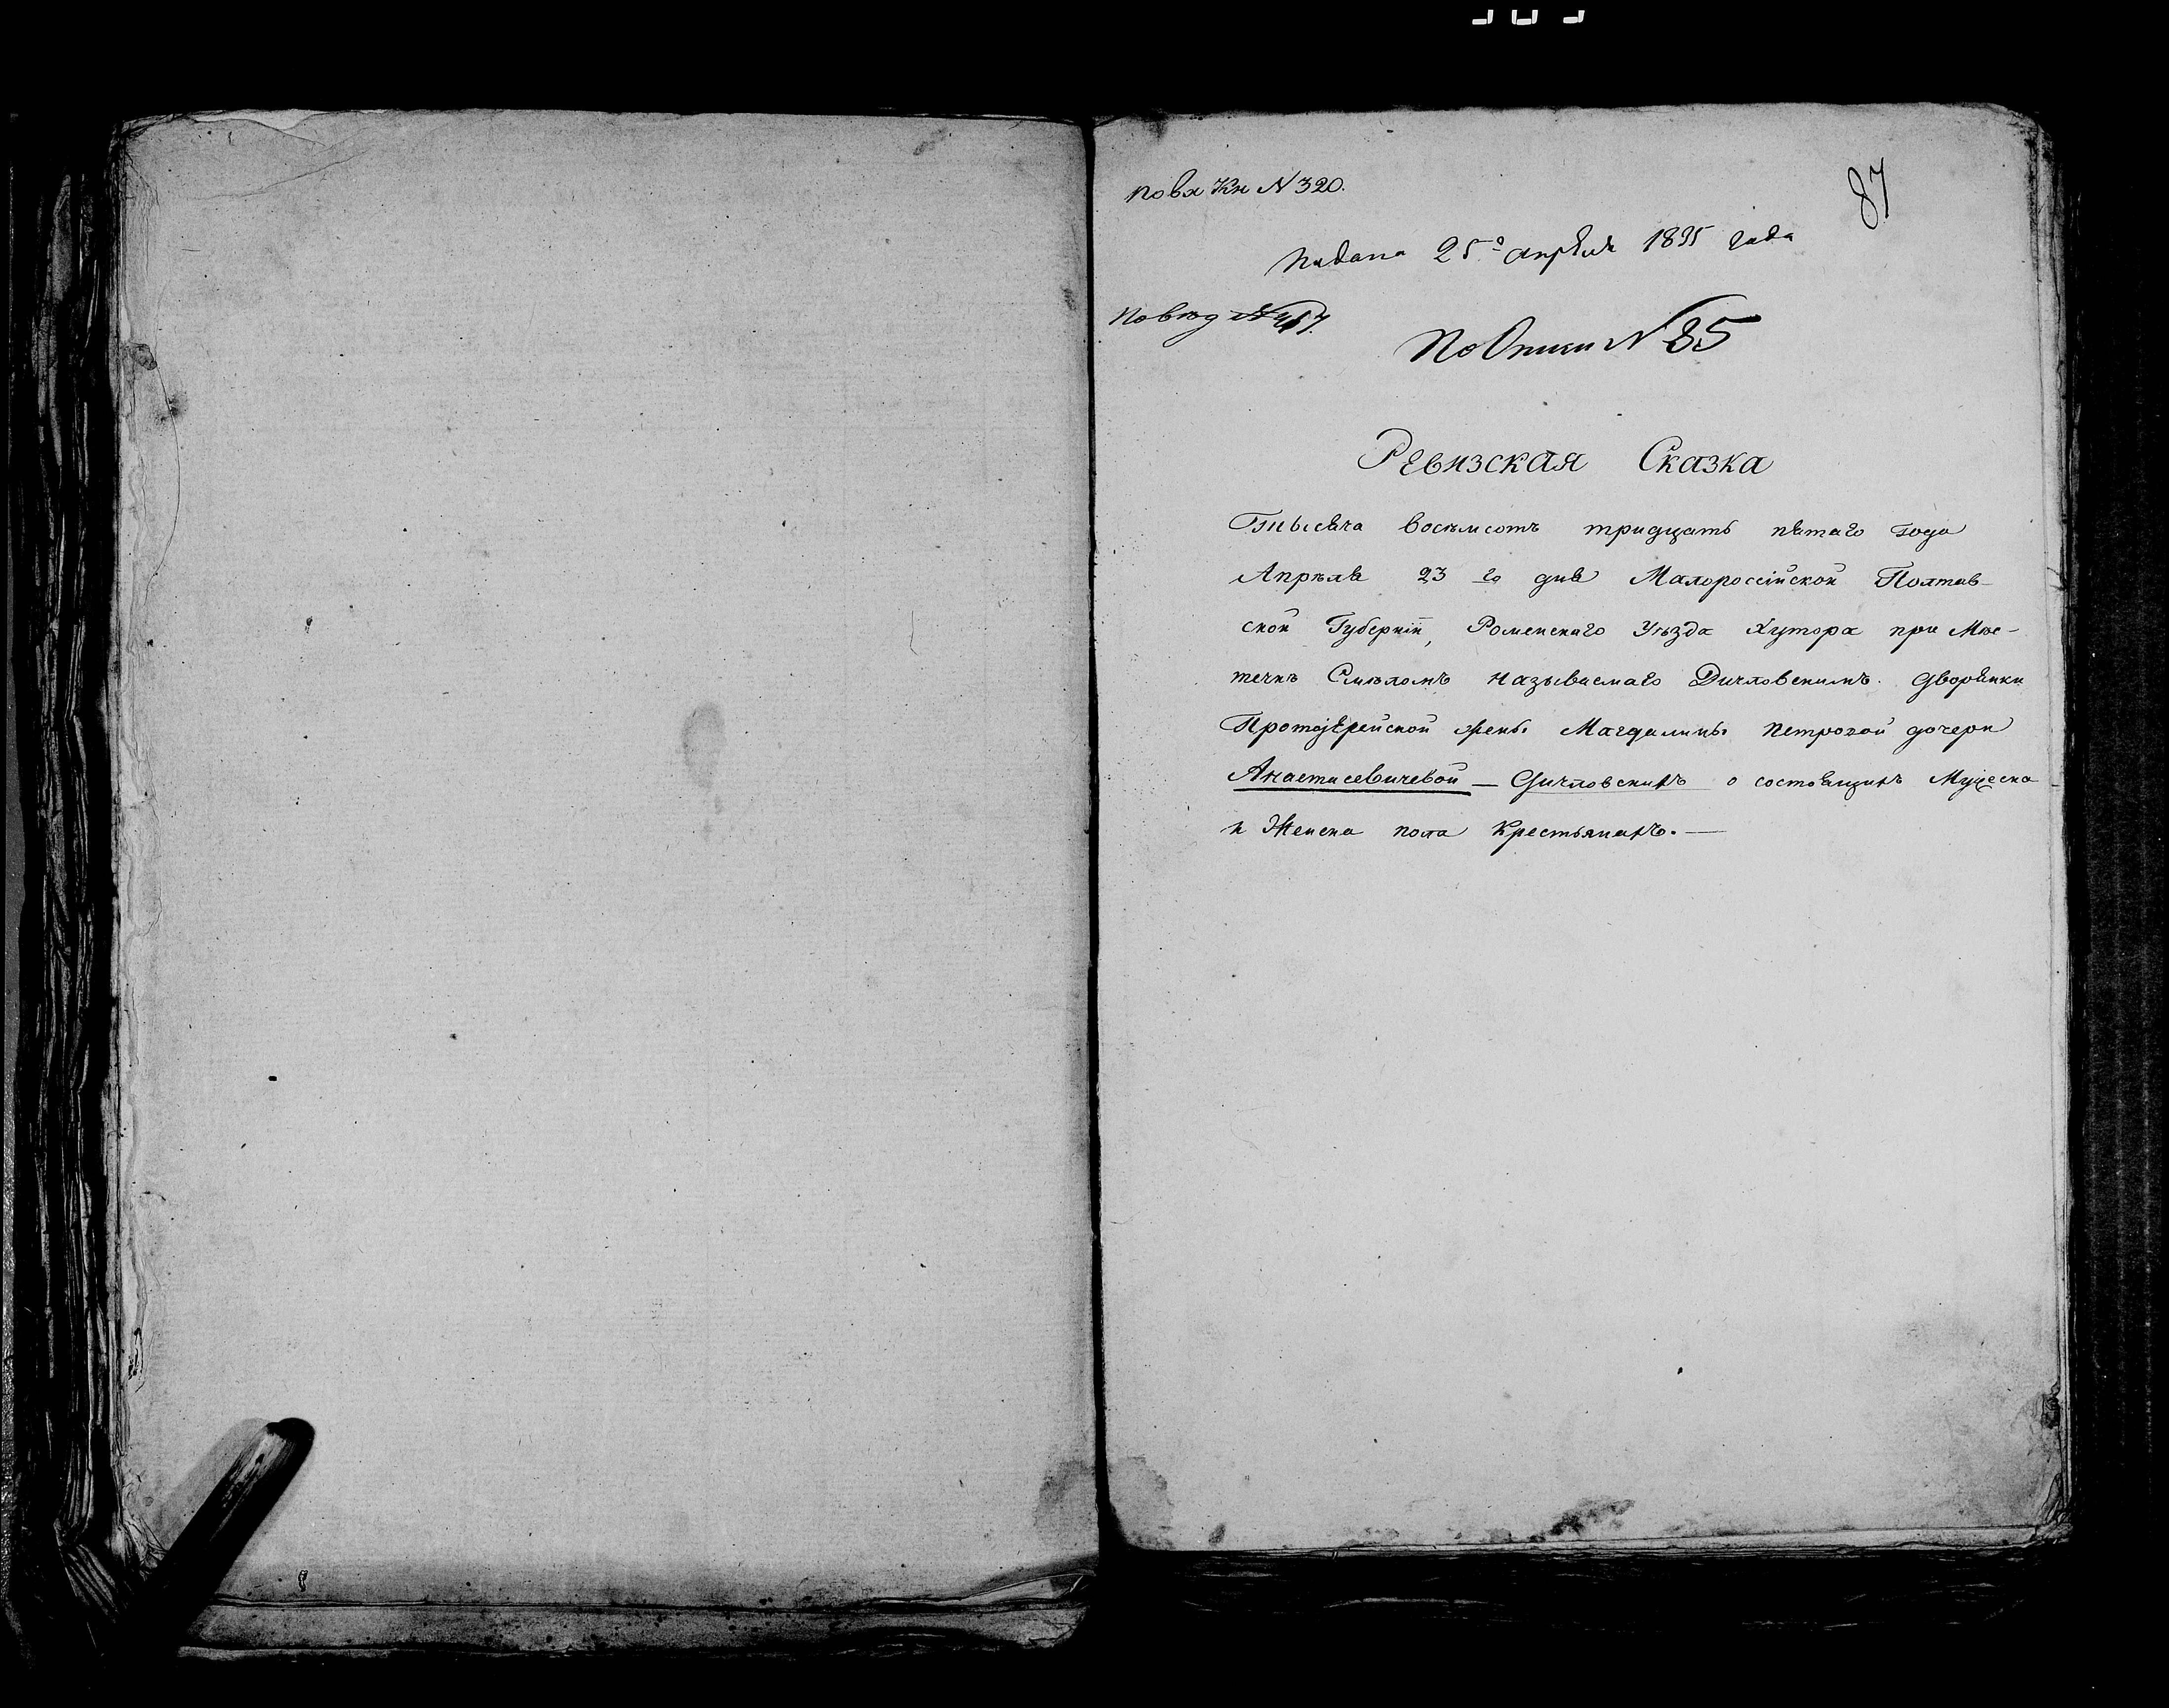 по вх Кн N 320.
87
Подана 25го апреля 1835 года
По вѣд № 457.
По Описи N 85
Ревизская Сказка
Тысяча восѣмсотъ тридцать пятаго года
Апрѣля 23 го дня Малороссійской Полтав-
ской Губерніи, Роменскаго Уѣзда Хутора при Мѣс-
течкѣ Смѣломъ называемаго Дичловскимъ. дворянки
Протоіерейской жены Магдалины Петровой дочери
Анастасевичевой — Дичловскихъ о состоящихъ Мужеска
и Женска пола крестьянахъ. —